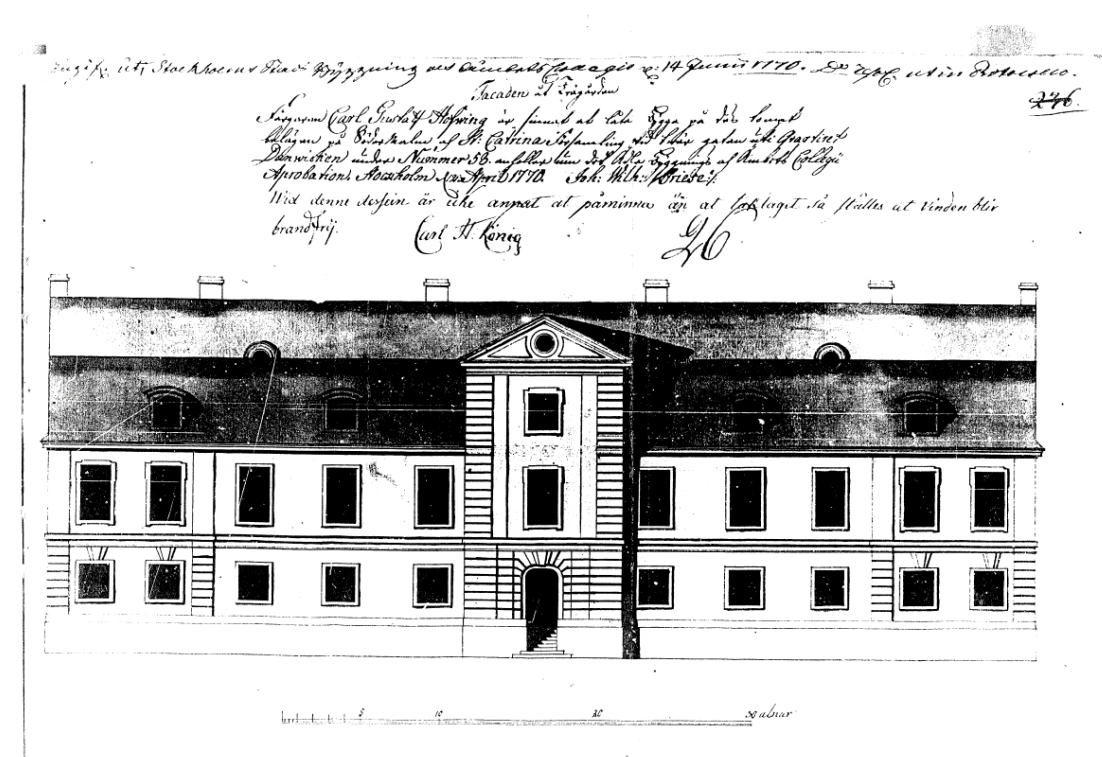 uti Stockholms Stads Byggning och Ämbets Collegio d: 14 Junii 1770. ut in Protocollo.
246.
Facaden åt Trägården
Färgaren Carl Gustaff Höfving är sinnat at låta bygga på dess tompt
belägen på Södermalm af St: Catrina Församling vid tvär gatan uti Qvarteret
Danwicken under Nummer 58. anhåller om dess Ädla Byggnings af Ämbets Collegii
Aprobation. Stockholm April 1770. Joh: Wilh: Friese
Wid denne dessein är icke annat at påminna än at taket så ställes at vinden blir
brandfrij.
Carl H. König
5 10 20 30 alnar